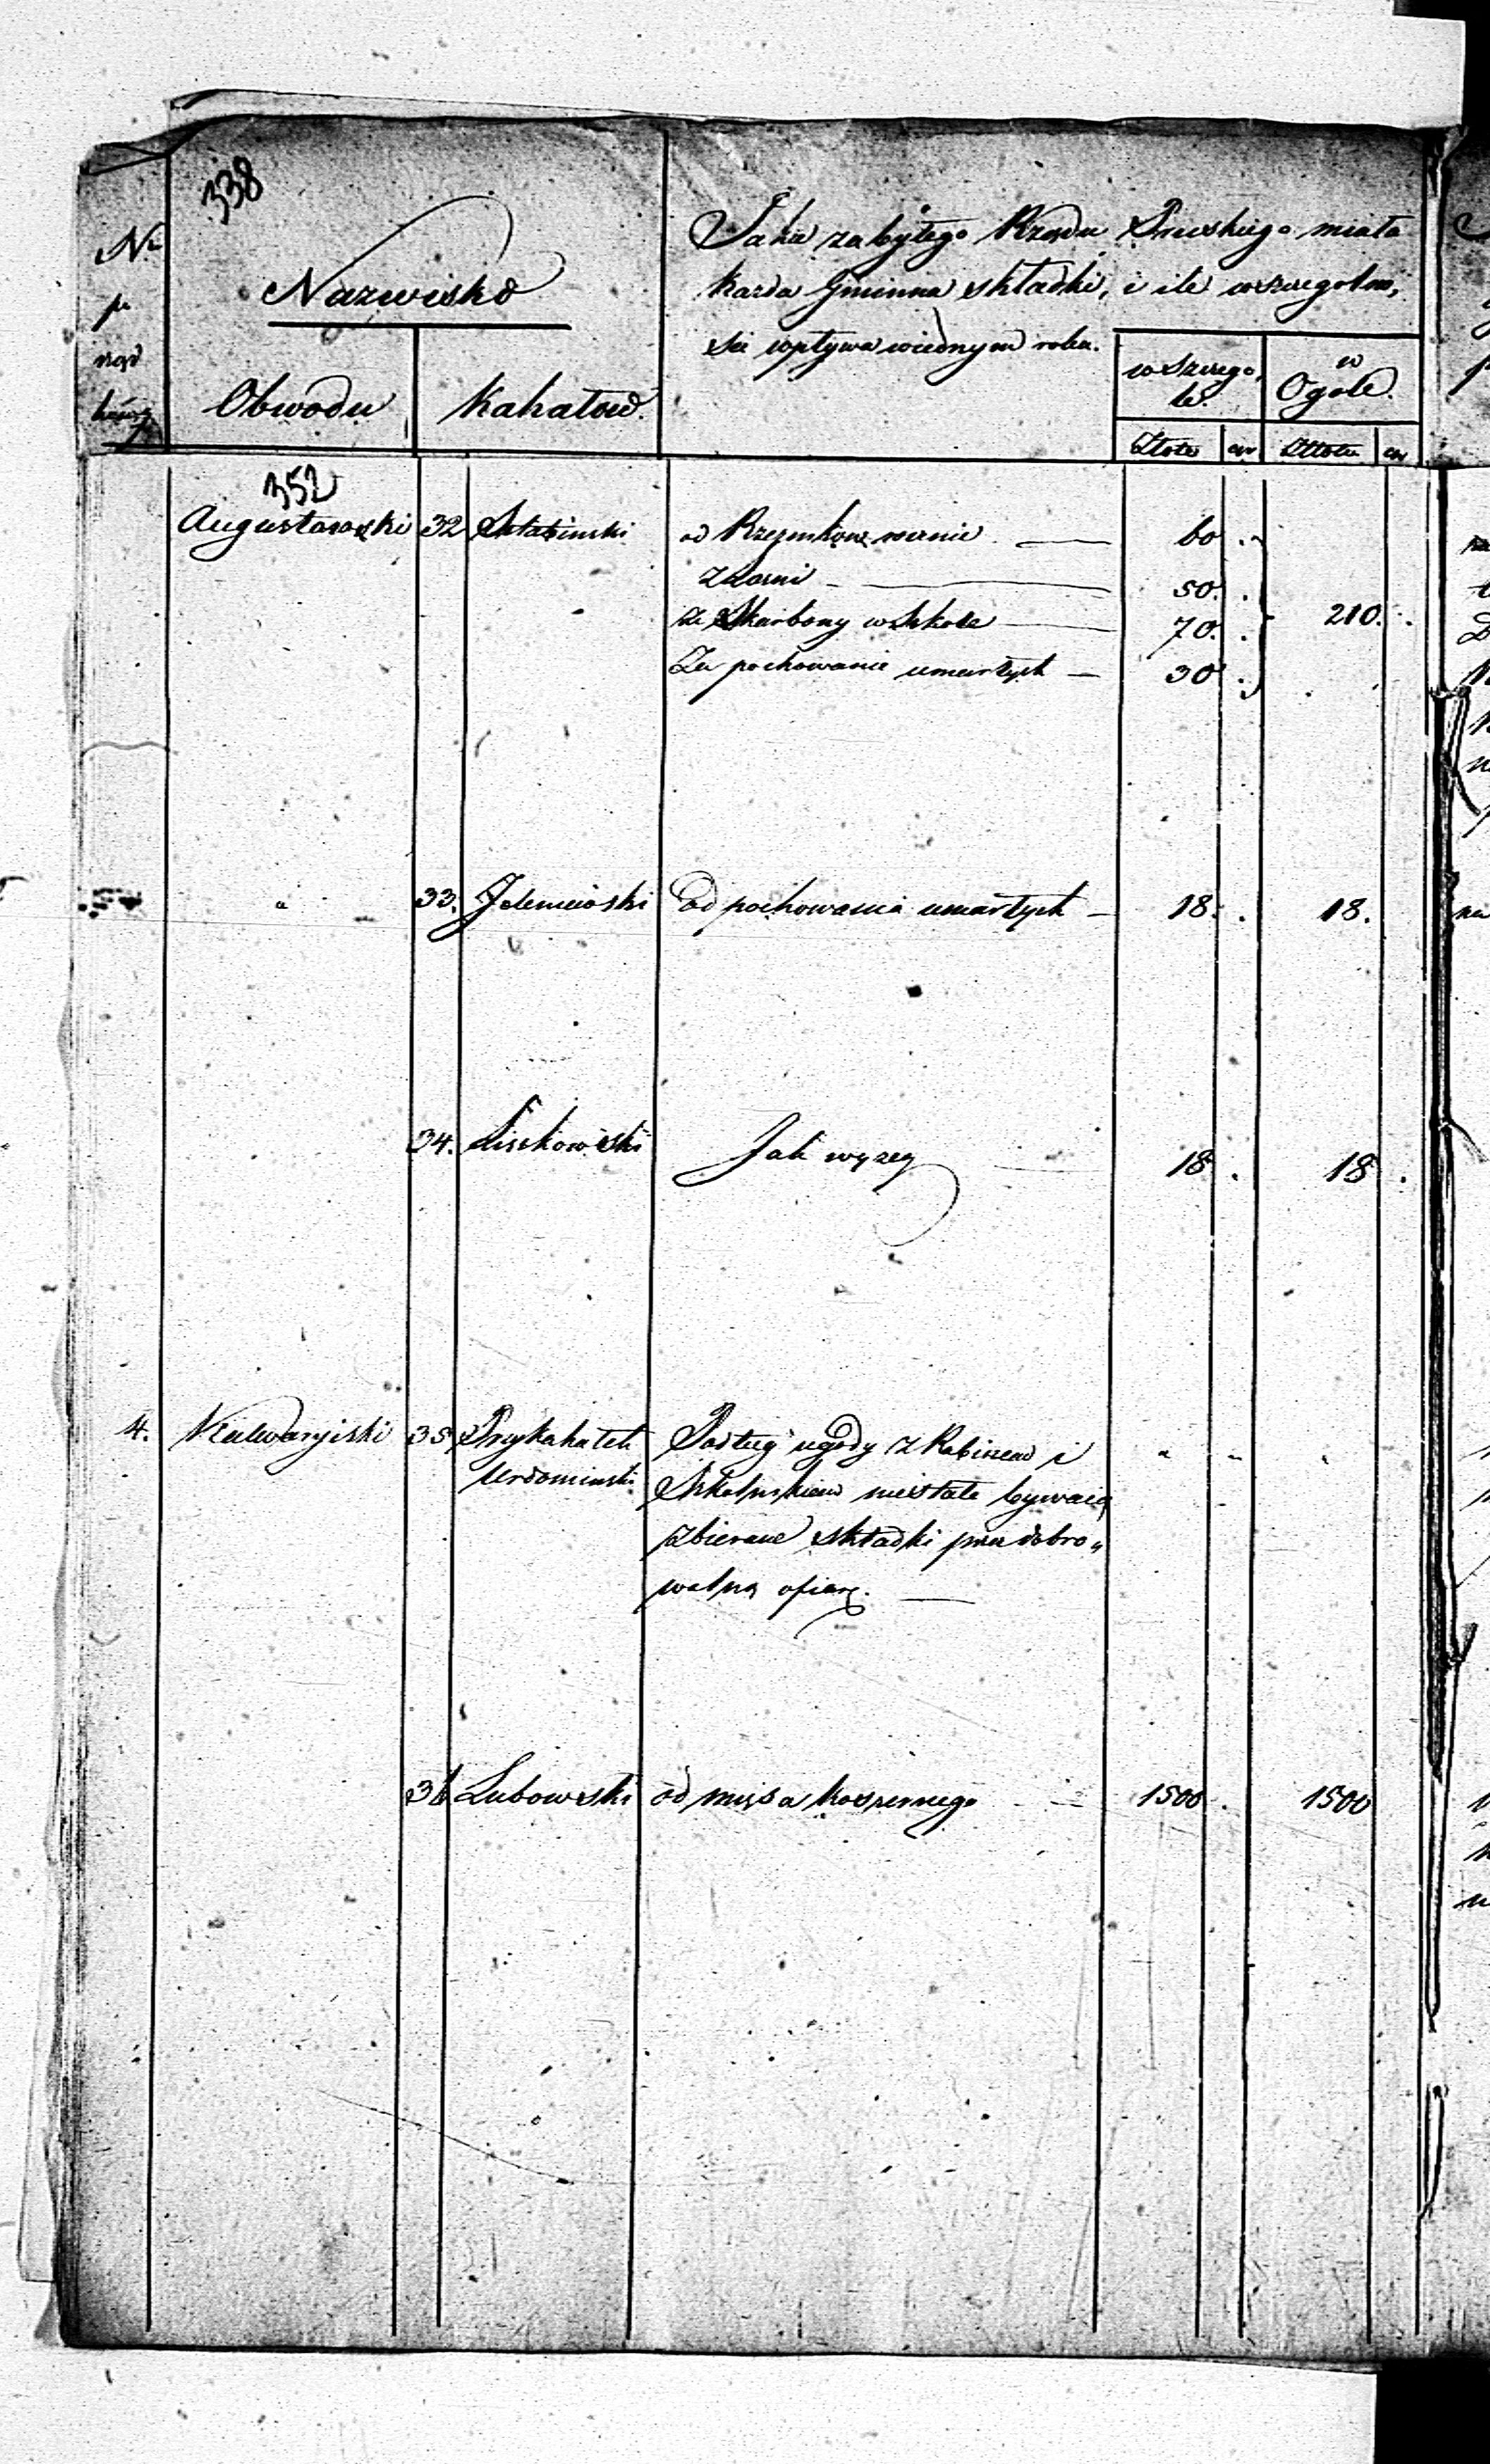 338
Nro
po
rząd
kowy
Nazwisko
Obwodu
Kahałow.
Jakie za byłego Rządu Pruskiego miała
każda Gminna składki, i ile wszczegolno,
sci wpływa wiednym roku.
w Szczego,
le.
w
Ogole.
Złote
gr
Złłote
gr
352
Augustowski 32 Sztabinski od Rzezunkow mernie 60 .
Z Łazni 50. .
ze Skarbony w Szkole 70. . 210. .
Za pochowanie umarłych 30 .
" 33. Jeleniewski Od pochowania umarłych 18. . 18.
34. Liszkowski Jak wyzey 18 . 18 .
4. Kalwaryiski 35 Przykahałek Podług ugody z Rabinem i " "
Urdominski Szkolnikiem niestałe bywaią
zbierane składki przez dobro„
wolną ofiarę.
36 Lubowski od mięsa koszernego 1500 . 1500